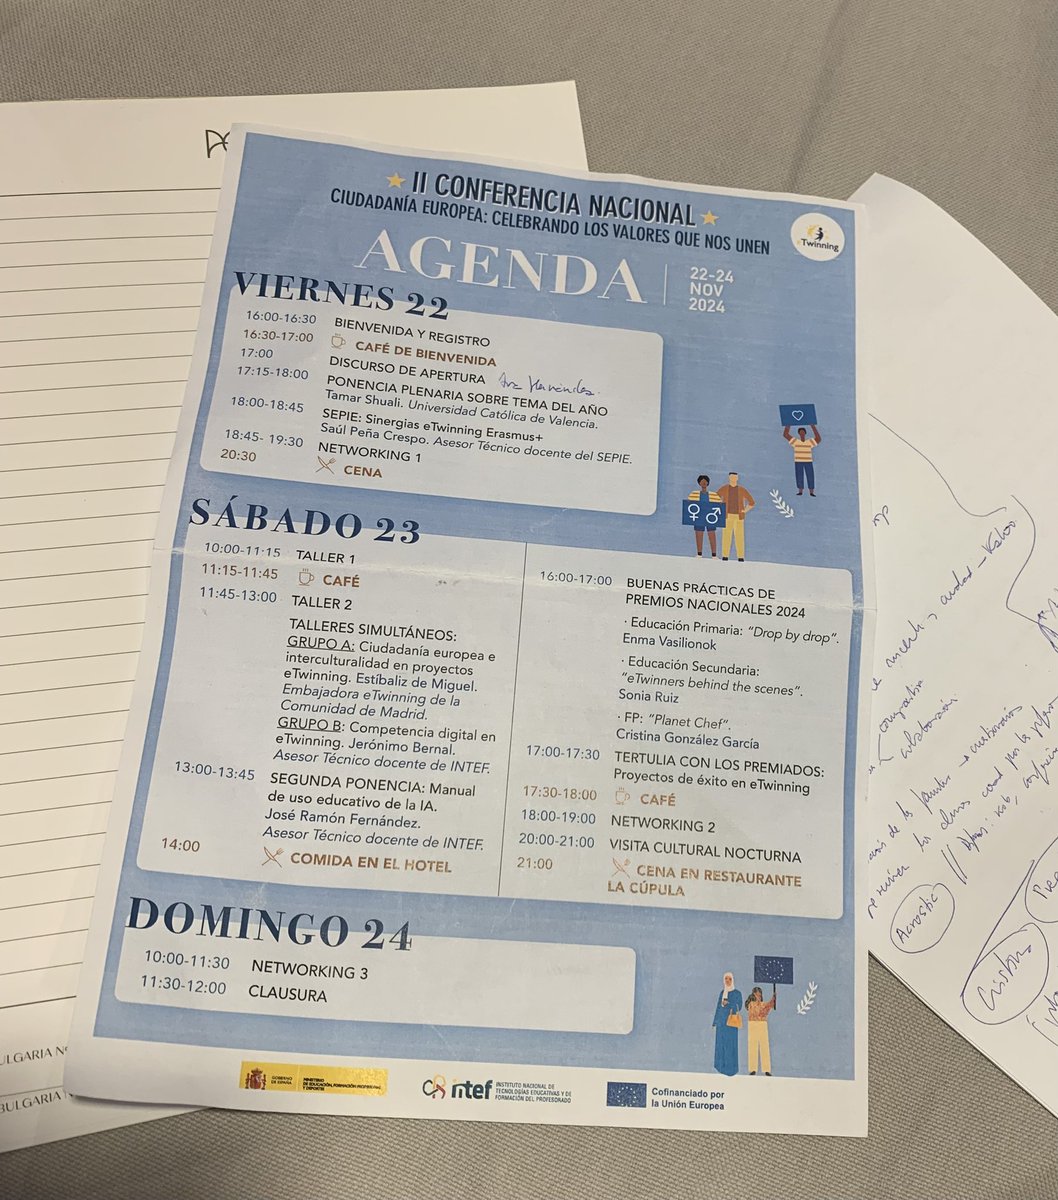 II CONFERENCIA NACIONAL
CIUDADANÍA EUROPEA: CELEBRANDO LOS VALORES QUE NOS UNEN
eTwinning
AGENDA
22-24
NOV
2024
VIERNES 22
16:00-16:30 BIENVENIDA Y REGISTRO
16:30-17:00 CAFÉ DE BIENVENIDA
17:00 DISCURSO DE APERTURA
17:15-18:00 PONENCIA PLENARIA SOBRE TEMA DEL AÑO
Tamar Shuali. Universidad Católica de Valencia.
18:00-18:45 SEPIE: Sinergias eTwinning Erasmus+
Saúl Peña Crespo. Asesor Técnico docente del SEPIE.
18:45- 19:30 NETWORKING 1
20:30 CENA
SÁBADO 23
10:00-11:15 TALLER 1
11:15-11:45 CAFÉ
11:45-13:00 TALLER 2
TALLERES SIMULTÁNEOS:
GRUPO A: Ciudadanía europea e
interculturalidad en proyectos
eTwinning. Estíbaliz de Miguel.
Embajadora eTwinning de la
Comunidad de Madrid.
GRUPO B: Competencia digital en
eTwinning. Jerónimo Bernal.
Asesor Técnico docente de INTEF.
13:00-13:45 SEGUNDA PONENCIA: Manual
de uso educativo de la IA.
José Ramón Fernández.
Asesor Técnico docente de INTEF.
14:00 COMIDA EN EL HOTEL
16:00-17:00 BUENAS PRÁCTICAS DE
PREMIOS NACIONALES 2024
· Educación Primaria: "Drop by drop".
Enma Vasilionok
· Educación Secundaria:
"eTwinners behind the scenes".
Sonia Ruiz
· FP: "Planet Chef".
Cristina González García
17:00-17:30 TERTULIA CON LOS PREMIADOS:
Proyectos de éxito en eTwinning
17:30-18:00 CAFÉ
18:00-19:00 NETWORKING 2
20:00-21:00 VISITA CULTURAL NOCTURNA
21:00 CENA EN RESTAURANTE
LA CÚPULA
DOMINGO 24
10:00-11:30 NETWORKING 3
11:30-12:00 CLAUSURA
GOBIERNO
DE ESPAÑA
MINISTERIO
DE EDUCACIÓN, FORMACIÓN PROFESIONAL
Y DEPORTES
intef
INSTITUTO NACIONAL DE
TECNOLOGÍAS EDUCATIVAS Y DE
FORMACIÓN DEL PROFESORADO
Cofinanciado por
la Unión Europea
Acrostic